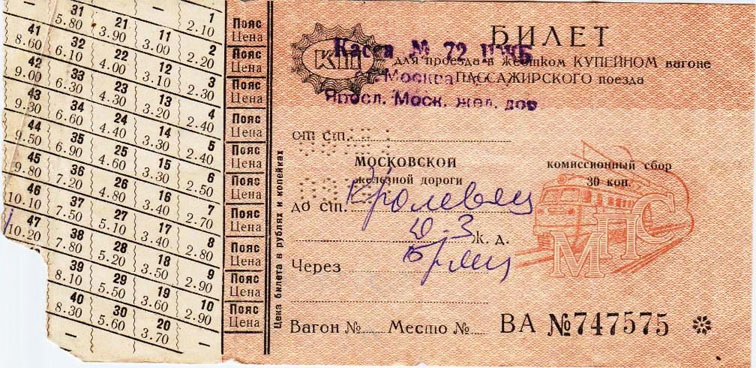 31 21 11 1 Пояс
5.80 3.90 3.00 2.10 Цена
41 32 22 12 2 Пояс
8.60 6.10 4.00 3.10 2.20 Цена
42 33 23 13 3 Пояс
9.00 6.30 4.30 3.20 2.30 Цена
43 34 24 14 4 Пояс
9.30 6.60 4.40 3.30 2.40 Цена
44 35 25 15 5 Пояс
9.50 6.90 4.60 3.30 2.40 Цена
45 36 26 16 6 Пояс
9.80 7.20 4.80 3.40 2.50 Цена
46 37 27 17 7 Пояс
10.10 7.50 5.10 3.40 2.70 Цена
47 38 28 18 8 Пояс
10.20 7.80 5.20 3.50 2.80 Цена
39 29 19 9 Пояс
8.10 5.50 3.60 2.90 Цена
40 30 20 10 Пояс
8.30 5.60 3.70 2.90 Цена
Цена билета в рублях и копейках
БИЛЕТ
КП
для проезда в жестком КУПЕЙНОМ вагоне
ПАССАЖИРСКОГО поезда
Касса № 72
Москва
Яросл. Моск. жел. дор
от ст.
МОСКОВСКОЙ
железной дороги
комиссионный сбор
30 коп.
до ст. Кролевец
Ю-З ж. д.
Через
Вагон № Место № ВА №747575
МПС